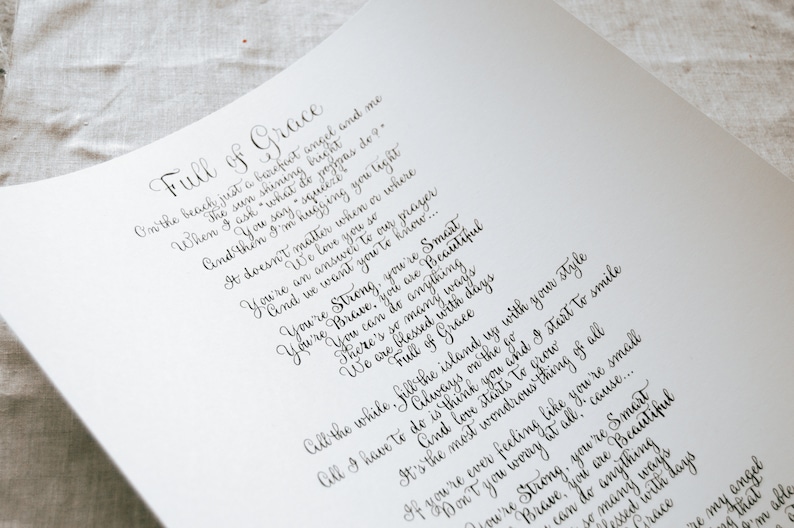 Full of Grace
On the beach just a barefoot angel and me
The sun shining bright
When I ask "what do poppas do?"
You say "squeeze"
And then I'm hugging you tight
It doesn't matter when or where
We love you so
You're an answer to our prayer
And we want you to know...
You're Strong, you're Smart
You're Brave, you are Beautiful
You can do anything
There's so many ways
We are blessed with days
Full of Grace
All the while, fill the island up with your style
Always on the go
All I have to do is think you and I start to smile
And love starts to grow
It's the most wondrous thing of all
If you're ever feeling like you're small
Don't you worry at all, 'cause...
You're Strong, you're Smart
Brave, you are Beautiful
can do anything
so many ways
blessed with days
Grace
're my angel
that
'm able